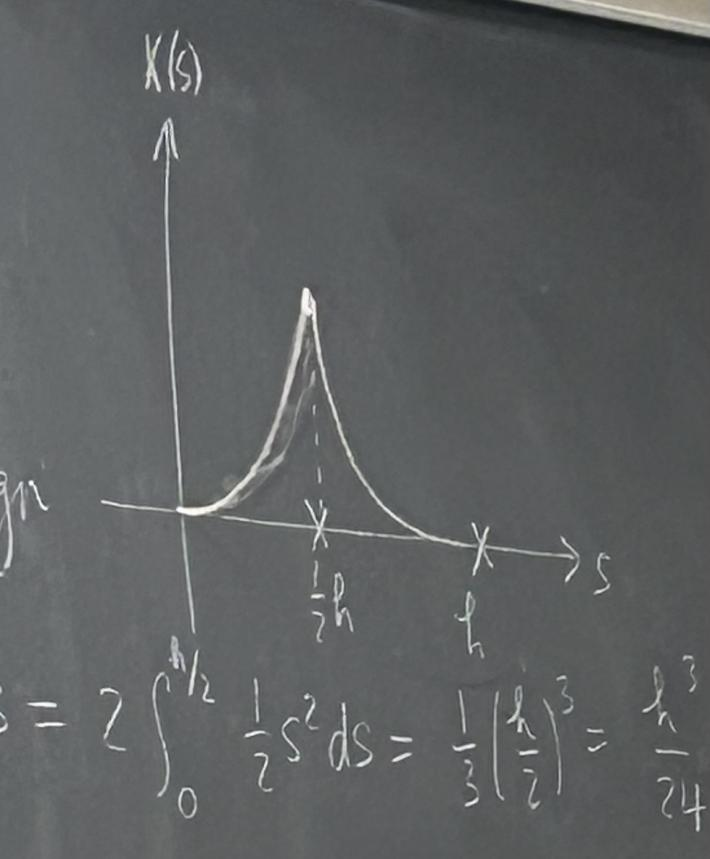 K(s)
s
½h
h
= 2 ∫₀^{h/2} ½ s² ds = ⅓ (h/2)³ = h³/24